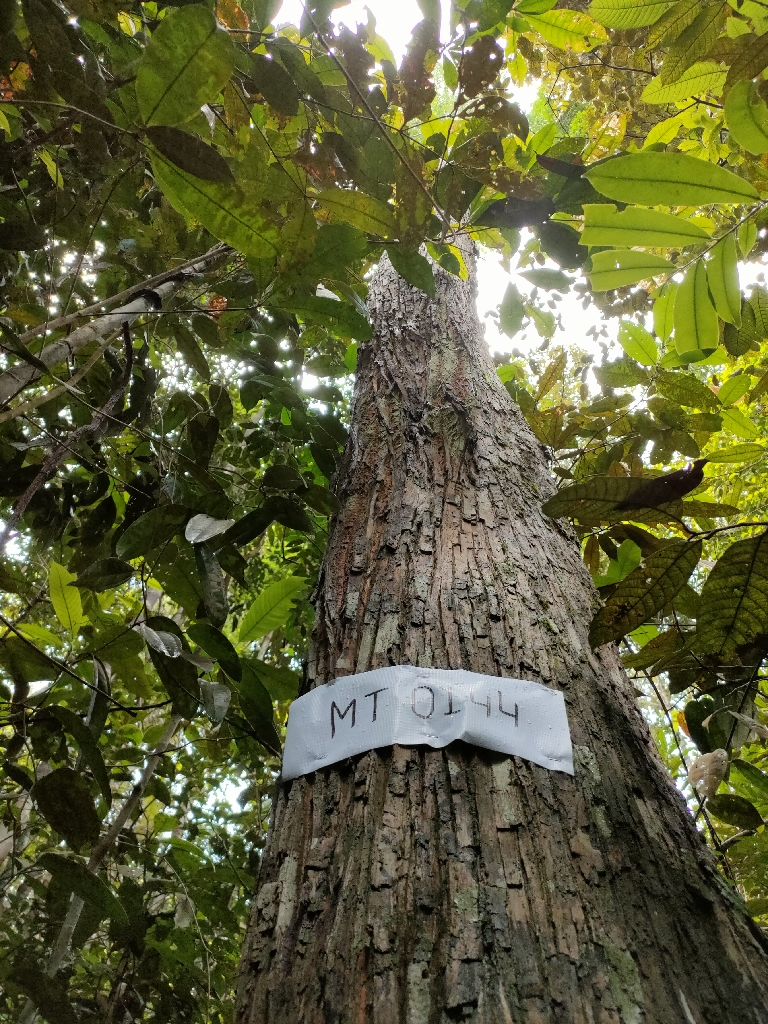 MT 0144